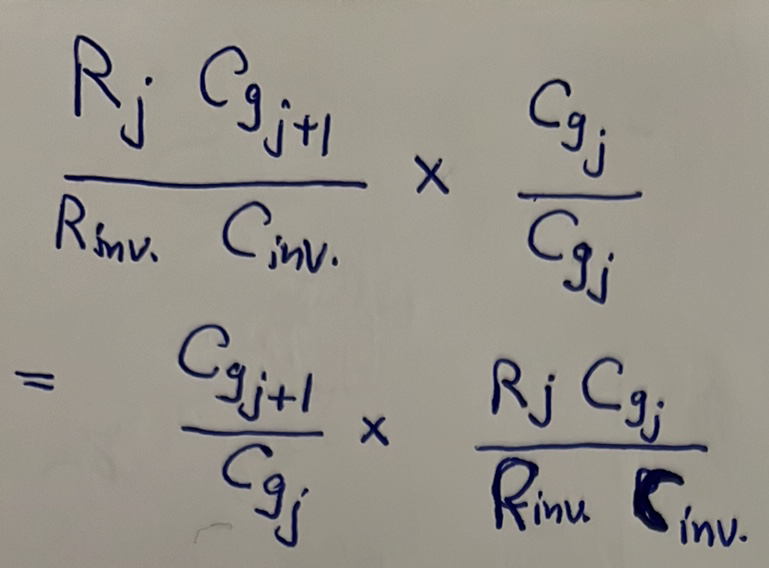 R_j C_{g_{j+1}} / R_{inv.} C_{inv.} × C_{g_j} / C_{g_j}
= C_{g_{j+1}} / C_{g_j} × R_j C_{g_j} / R_{inv.} C_{inv.}